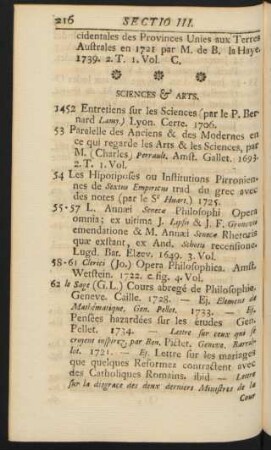 216 SECTIO III.
cidentales des Provinces Unies aux Terres
Australes en 1721 par M. de B. la Haye
1739. 2.T. 1.Vol. C.
SCIENCES & ARTS.
1452 Entretiens sur les Sciences (par le P. Ber-
nard Lamy,) Lyon. Certe. 1706.
53 Paralelle des Anciens & des Modernes en
ce qui regarde les Arts & les Sciences, par
M. (Charles) Perrault. Amst. Gallet. 1693.
2.T. 1.Vol.
54 Les Hipotiposes ou Institutions Pirronien-
nes de Sextus Empiricus trad du grec avec
des notes (par le Sr Huart.) 1725.
55-57 L. Annæi Senecæ Philosophi Opera
omnia; ex ultima J. Lipsii & J. F. Gronovii
emendatione & M. Annæi Senecæ Rhetoris
quæ exstant, ex And. Schotti recensione.
Lugd. Bat. Elzev. 1649. 3. Vol.
58-61 Clerici (Jo.) Opera Philosophica. Amst.
Wetstein. 1722. c. fig. 4. Vol.
62 le Sage (G.L.) Cours abregé de Philosophie.
Geneve. Caille. 1728. — Ej. Elemens de
Mathématique. Gen. Pellet. 1733. — Ej.
Pensées hazardées sur les études Gen.
Pellet. 1734. — Lettre sur ceux qui se
croyent inspirez, par Ben. Pictet. Geneve.
lot. 1721. — Ej. Lettre sur les mariages
que quelques Reformez contractent avec
des Catholiques Romains. ibid. — Lettre
sur la disgrace des deux derniers Ministres de la
Cour